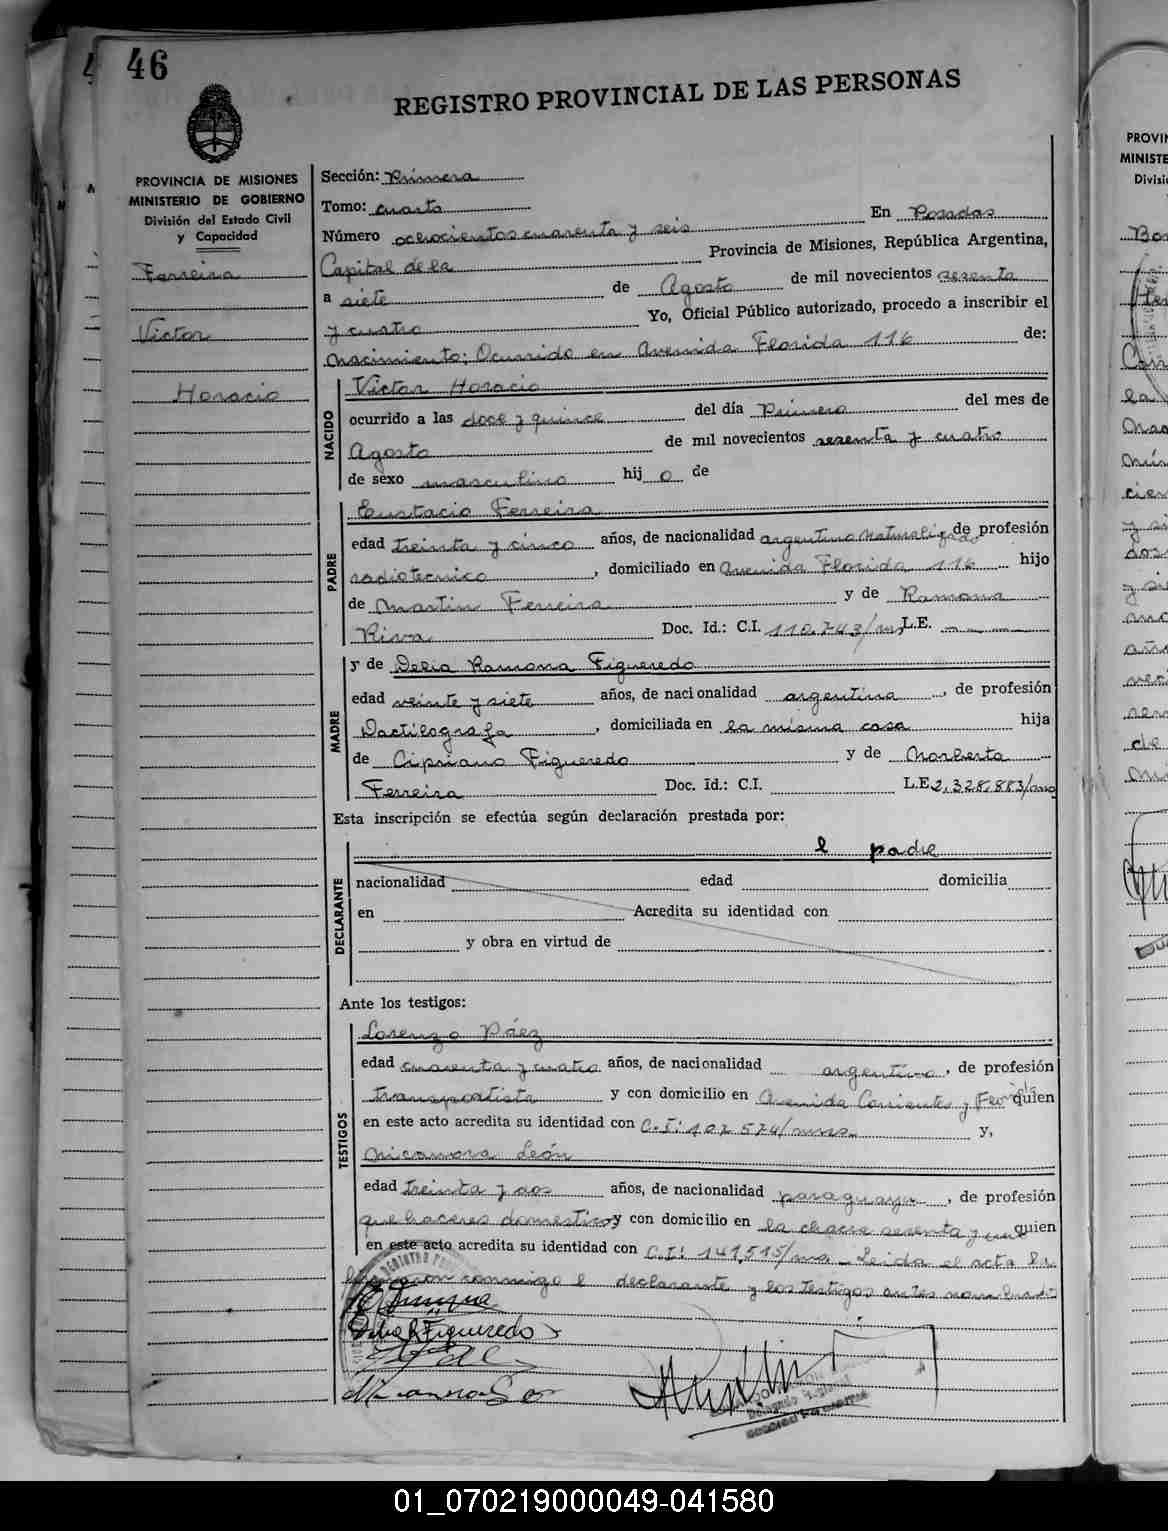 46
REGISTRO PROVINCIAL DE LAS PERSONAS
PROVINCIA DE MISIONES
MINISTERIO DE GOBIERNO
División del Estado Civil
y Capacidad
Ferreira
Victor
Horacio
Sección: Primera
Tomo: cuarto
Número ochocientos cuarenta y seis En Posadas
Capital de la Provincia de Misiones, República Argentina,
a siete de Agosto de mil novecientos sesenta
y cuatro Yo, Oficial Público autorizado, procedo a inscribir el
nacimiento; Ocurrido en Avenida Florida 116 de:
NACIDO
Victor Horacio
ocurrido a las doce y quince del día Primero del mes de
Agosto de mil novecientos sesenta y cuatro
de sexo masculino hij o de
PADRE
Eustacio Ferreira
edad treinta y cinco años, de nacionalidad argentino naturalizado de profesión
radiotecnico, domiciliado en Avenida Florida 116 hijo
de Martin Ferreira y de Ramona
Riva Doc. Id.: C.I. 110.743/m, L.E.
MADRE
y de Delia Ramona Figueredo
edad veinte y siete años, de nacionalidad argentina, de profesión
Dactilografa, domiciliada en la misma casa hija
de Cipriano Figueredo y de Norberta
Ferreira Doc. Id.: C.I. L.E. 2.328.883/mno
Esta inscripción se efectúa según declaración prestada por:
DECLARANTE
el padre
nacionalidad edad domicilia
en Acredita su identidad con
y obra en virtud de
Ante los testigos:
TESTIGOS
Lorenzo Páez
edad cuarenta y cuatro años, de nacionalidad argentino, de profesión
transportista y con domicilio en Avenida Corrientes y quien
en este acto acredita su identidad con C.I: 102.574/mns. y,
Nicanora León
edad treinta y dos años, de nacionalidad paraguaya, de profesión
quehaceres domesticos y con domicilio en la chacra sesenta y una quien
en este acto acredita su identidad con C.I: 147.515/mns. Leida el acta la
firmaron conmigo el declarante y los testigos antes nombrados
Delia R Figueredo
PROVIN
MINISTE
Divisi
01_070219000049-041580